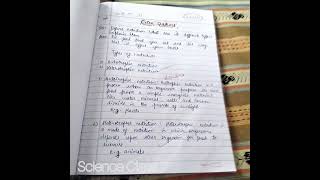 Extra Questions
Ques: Define nutrition. What are its different types?
Ans: The food that you eat and the way
that it types your body.
Types of nutrition
i) Autotrophic nutrition
ii) Heterotrophic nutrition
i) Autotrophic nutrition: Autotrophic nutrition is a
process where an organism prepares its own
food from a simple inorganic materials
like water, mineral salts and carbon
dioxide in the presence of sunlight.
E.g. plants
ii) Heterotrophic nutrition: Heterotrophic nutrition is
a mode of nutrition in which organisms
depends upon other organism for food to
survive.
E.g. animals
Science Class